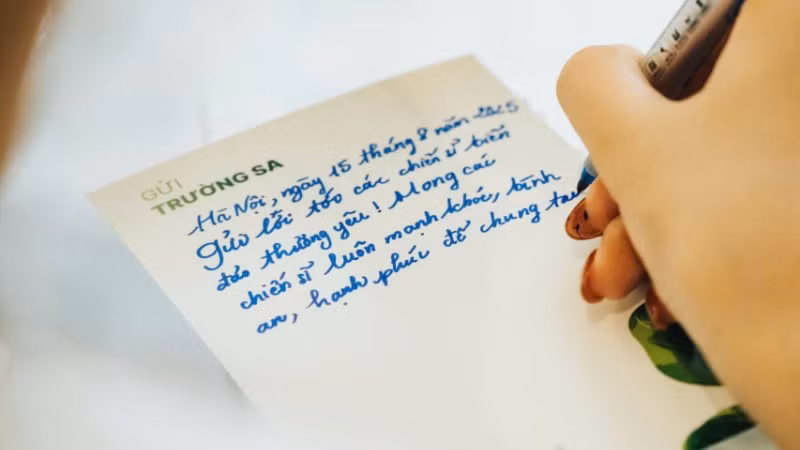 GỬI
TRƯỜNG SA
Hà Nội, ngày 15 tháng 8 năm 2025
Gửi lời tới các chiến sĩ biển
đảo thương yêu! Mong các
chiến sĩ luôn mạnh khỏe, bình
an, hạnh phúc để chung tay